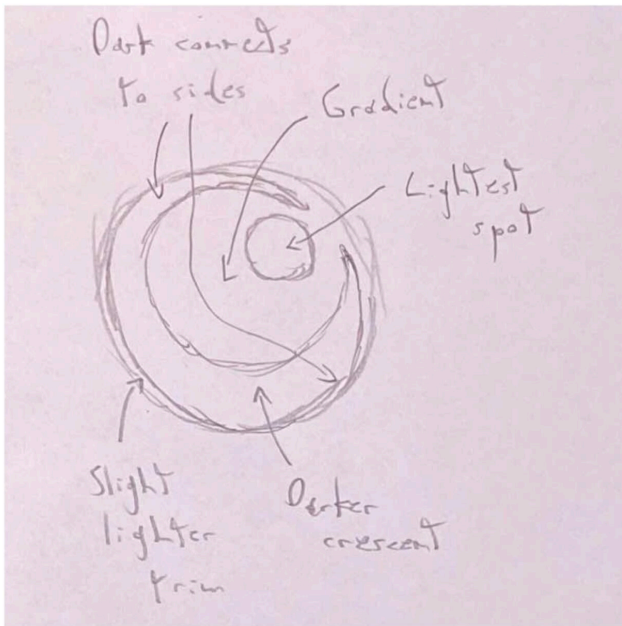 Dark connects
to sides
Gradient
Lightest
spot
Slight
lighter
trim
Darker
crescent